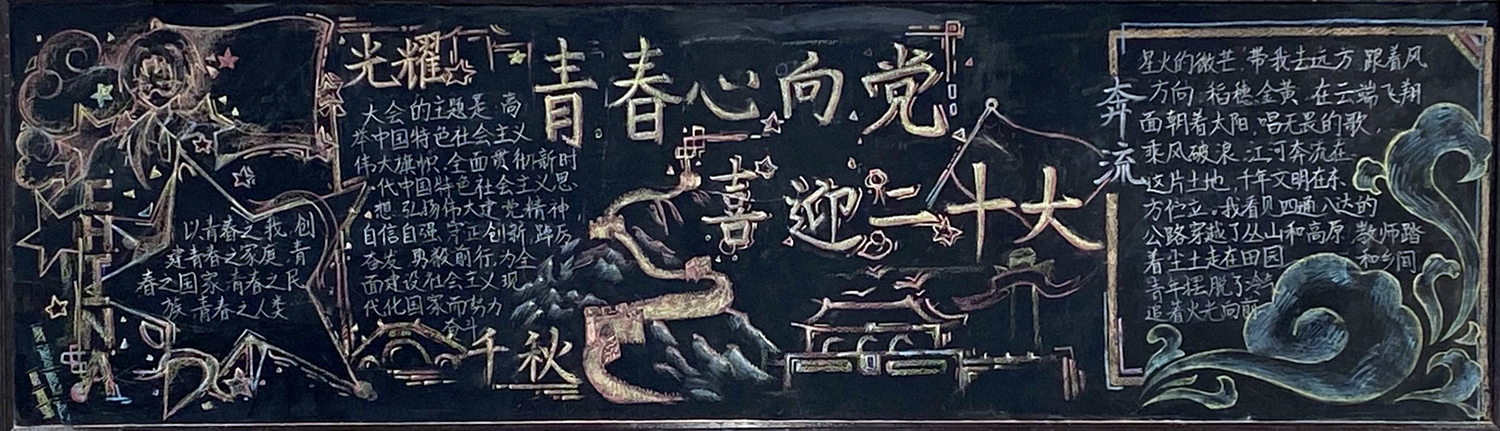 CHINA
以青春之我 创
建青春之家庭 青
春之国家 青春之民
族 青春之人类
光耀
大会的主题是:高
举中国特色社会主义
伟大旗帜,全面贯彻新时
代中国特色社会主义思
想,弘扬伟大建党精神,
自信自强,守正创新,踔厉
奋发、勇毅前行,为全
面建设社会主义现
代化国家而努力
奋斗
千秋
青春心向党
喜迎二十大
奔流
星火的微芒 带我去远方 跟着风
方向 稻穗金黄 在云端飞翔
面朝着太阳 唱无畏的歌,
乘风破浪 江河奔流在
这片土地 千年文明在东
方伫立。我看见四通八达的
公路穿越了丛山和高原 教师踏
着尘土走在田园 和乡间
青年摆脱了冷气
追着火光向前